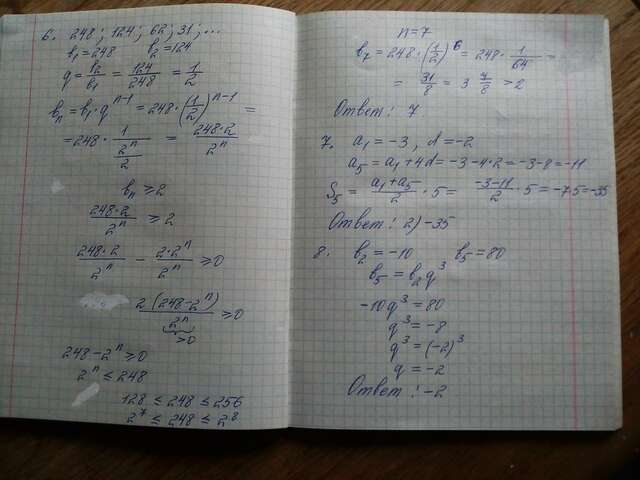 6. 248; 124; 62; 31; ...
b₁=248 b₂=124
q = b₂/b₁ = 124/248 = 1/2
bₙ = b₁·qⁿ⁻¹ = 248·(1/2)ⁿ⁻¹ =
= 248· 1/(2ⁿ/2) = 248·2/2ⁿ
bₙ ≥ 2
248·2/2ⁿ ≥ 2
248·2/2ⁿ - 2·2ⁿ/2ⁿ ≥ 0
2(248-2ⁿ)/2ⁿ ≥ 0
>0
248-2ⁿ ≥ 0
2ⁿ ≤ 248
128 ≤ 248 ≤ 256
2⁷ ≤ 248 ≤ 2⁸
n=7
b₇ = 248·(1/2)⁶ = 248· 1/64 =
= 31/8 = 3 7/8 > 2
Ответ: 7
7. a₁=-3, d=-2
a₅ = a₁+4d = -3-4·2 = -3-8 = -11
S₅ = (a₁+a₅)/2 ·5 = (-3-11)/2 ·5 = -7·5 = -35
Ответ: 2) -35
8. b₂ = -10 b₅ = 80
b₅ = b₂q³
-10q³ = 80
q³ = -8
q³ = (-2)³
q = -2
Ответ: -2